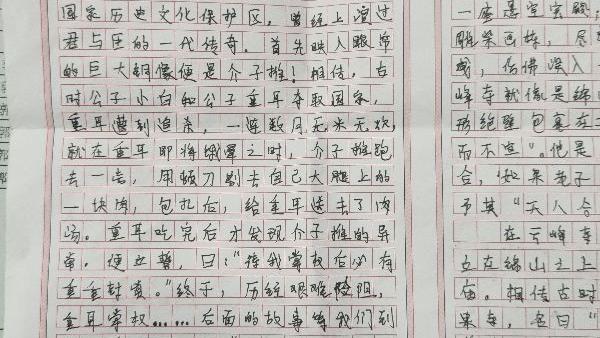 国家历史文化保护区，曾经上演过
君与臣的一代传奇。首先映入眼帘
的巨大铜像便是介子推！相传，古
时公子小白和公子重耳夺取国家，
重耳遭到追杀，一连数月无米无炊，
就在重耳即将饿晕之时，介子推跑
去一旁，用顿刀割去自己大腿上的
一块肉，包扎后，给重耳送去了肉
汤。重耳吃完后才发现介子推的异
常。便立誓，曰：“待我掌权后必有
重重封赏。”终于，历经艰难险阻，
重耳掌权……后面的故事等我们到
一座悬空宫殿
雕梁画栋，尽
或，仿佛误入
峰寺就像是绵
形绝壁包裹在
而不点”。他是
合，如果老子
予其“天人合
在云峰寺
立在绵山之上
庙。相传古时
果寺，名曰“